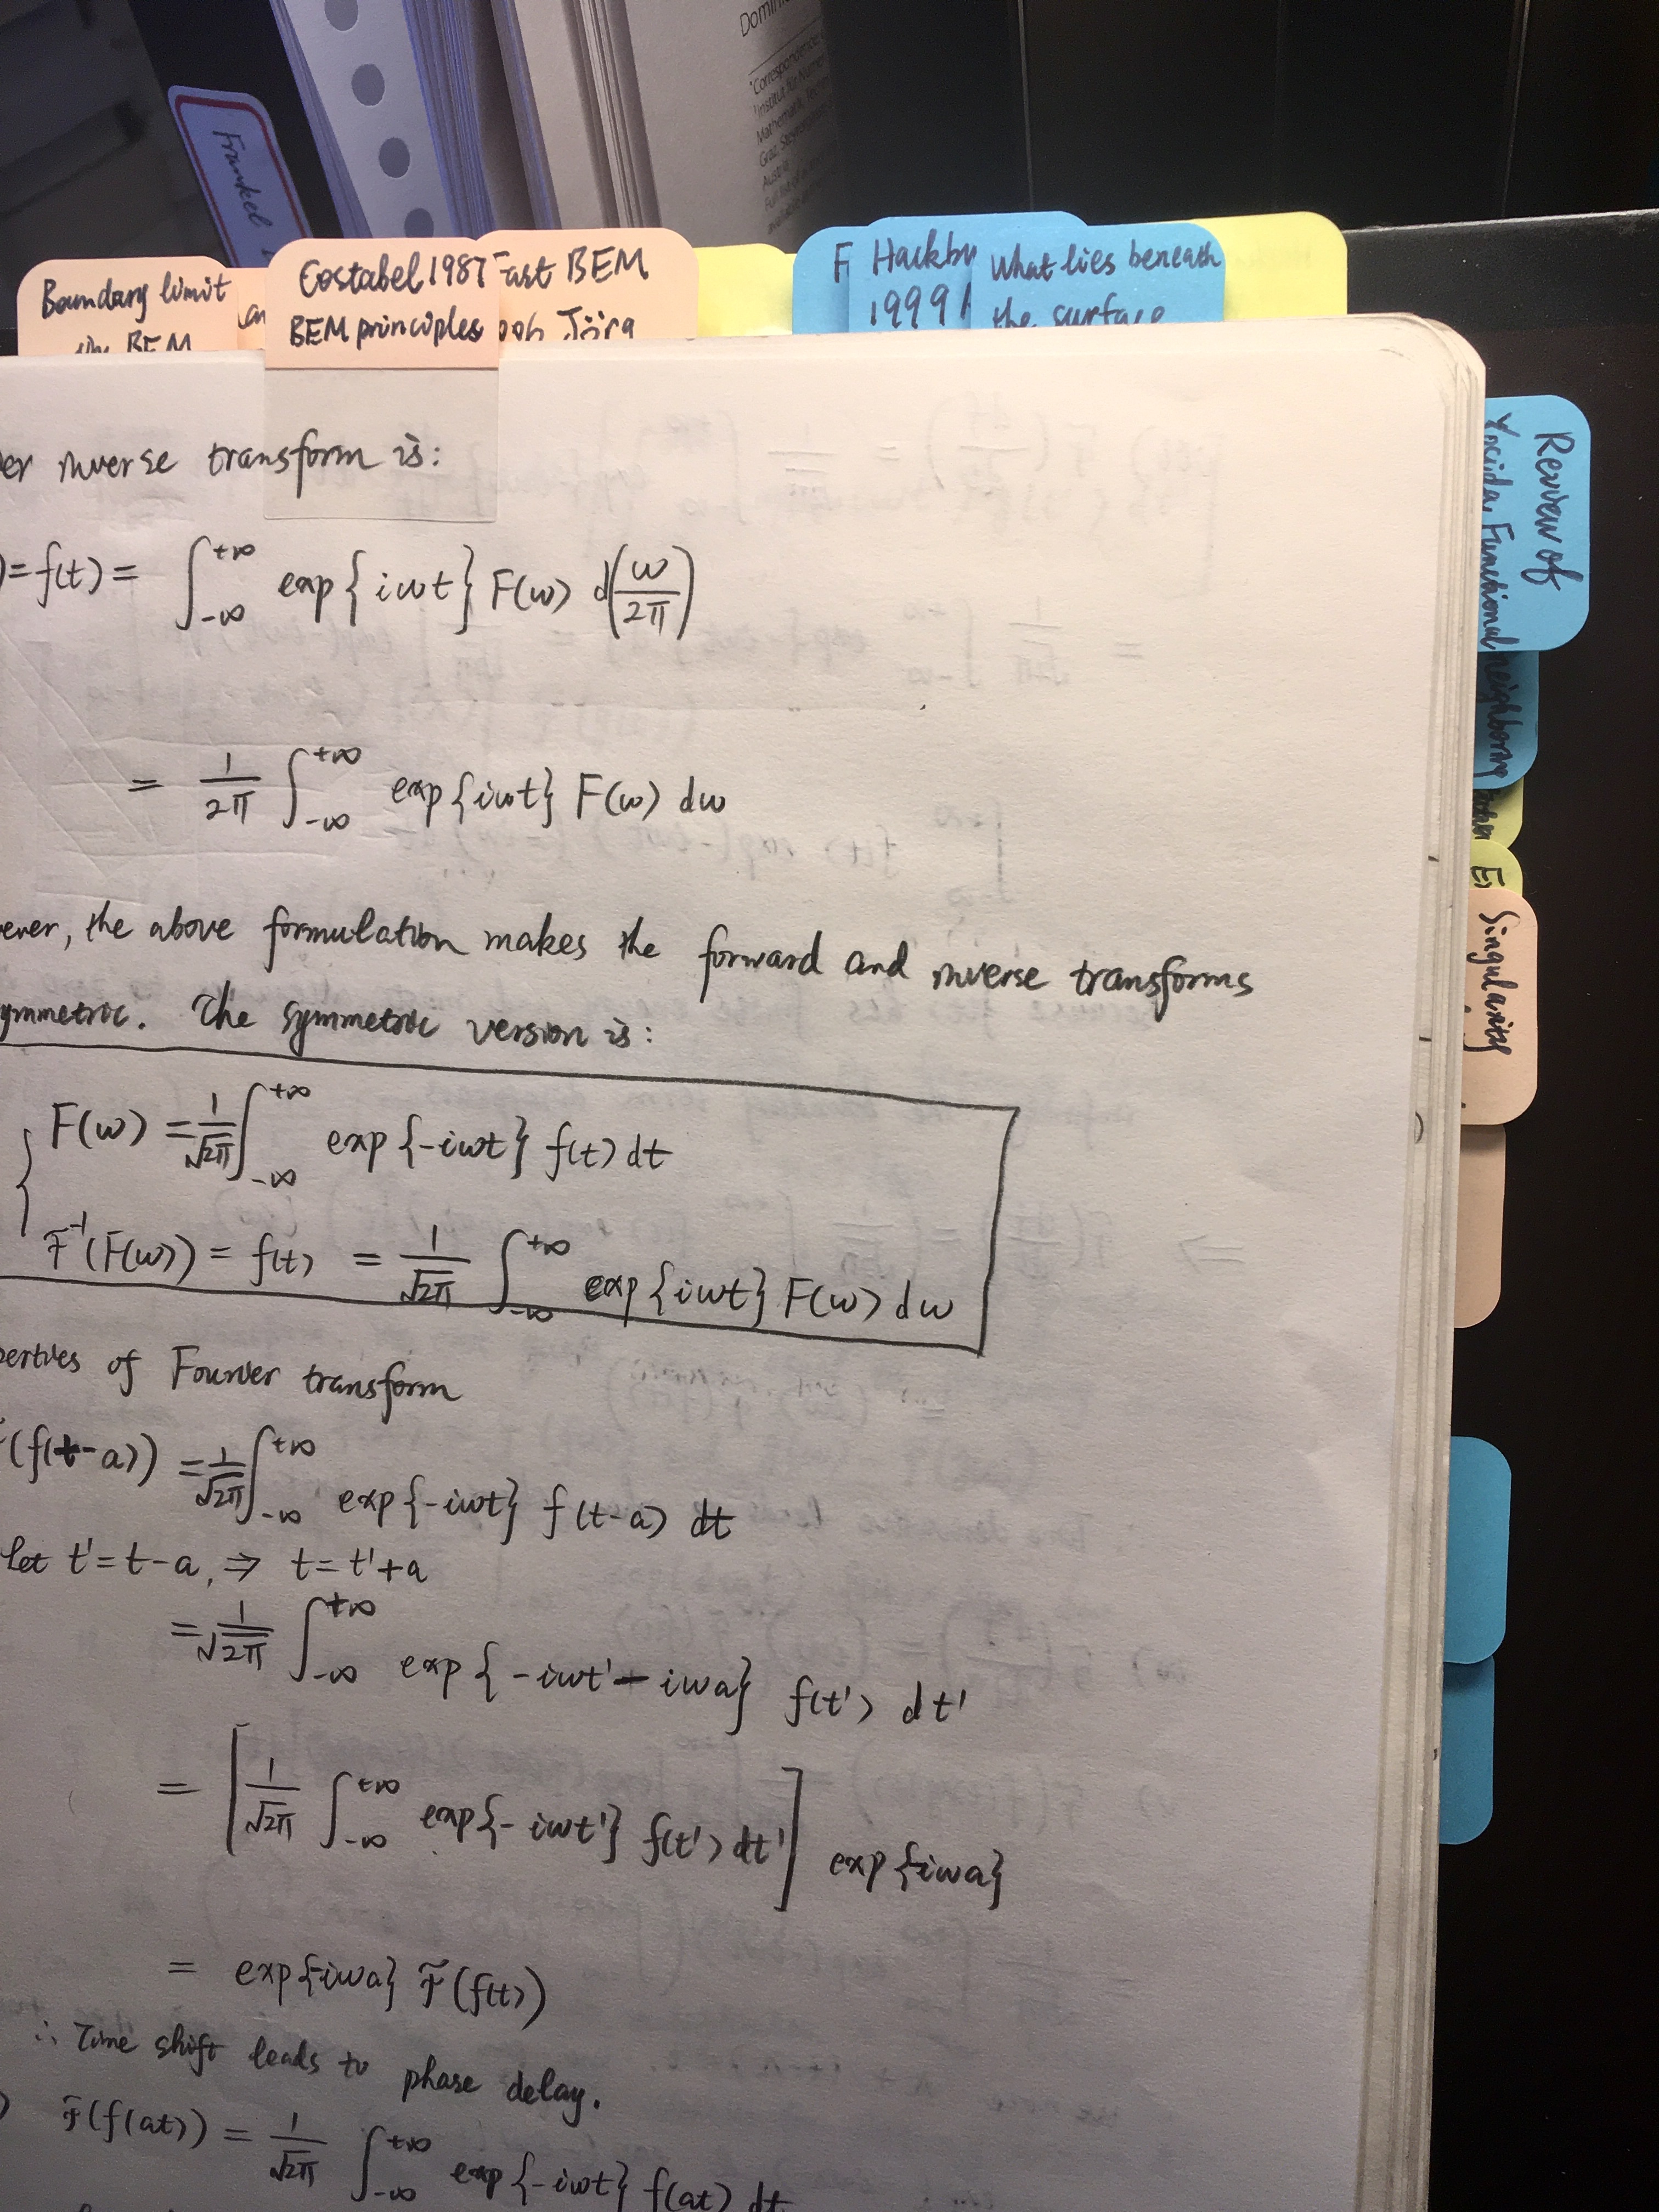 Domini
*Correspondence:
Institut für Numer
Mathematik, Techn
Graz, Steyrergasse
Austria
Full list of
available
Frankel
Boundary limit
in BEM
Costabel 1987
BEM principles
Fast BEM
Jörg
F
Hackbu
1999
What lies beneath
the surface
Review of
Yosida, Functional
neighboring
Singularity
er inverse transform is:
) = f(t) = ∫_{-∞}^{+∞} exp{iωt} F(ω) d(ω/2π)
= 1/2π ∫_{-∞}^{+∞} exp{iωt} F(ω) dω
ever, the above formulation makes the forward and inverse transforms
ymmetric. The symmetric version is:
F(ω) = 1/√2π ∫_{-∞}^{+∞} exp{-iωt} f(t) dt
F⁻¹(F(ω)) = f(t) = 1/√2π ∫_{-∞}^{+∞} exp{iωt} F(ω) dω
perties of Fourier transform
(f(t-a)) = 1/√2π ∫_{-∞}^{+∞} exp{-iωt} f(t-a) dt
Let t'=t-a, ⇒ t=t'+a
= 1/√2π ∫_{-∞}^{+∞} exp{-iωt'-iωa} f(t') dt'
= [1/√2π ∫_{-∞}^{+∞} exp{-iωt'} f(t') dt'] exp{-iωa}
= exp{-iωa} F(f(t))
∴ Time shift leads to phase delay.
) F(f(at)) = 1/√2π ∫_{-∞}^{+∞} exp{-iωt} f(at) dt